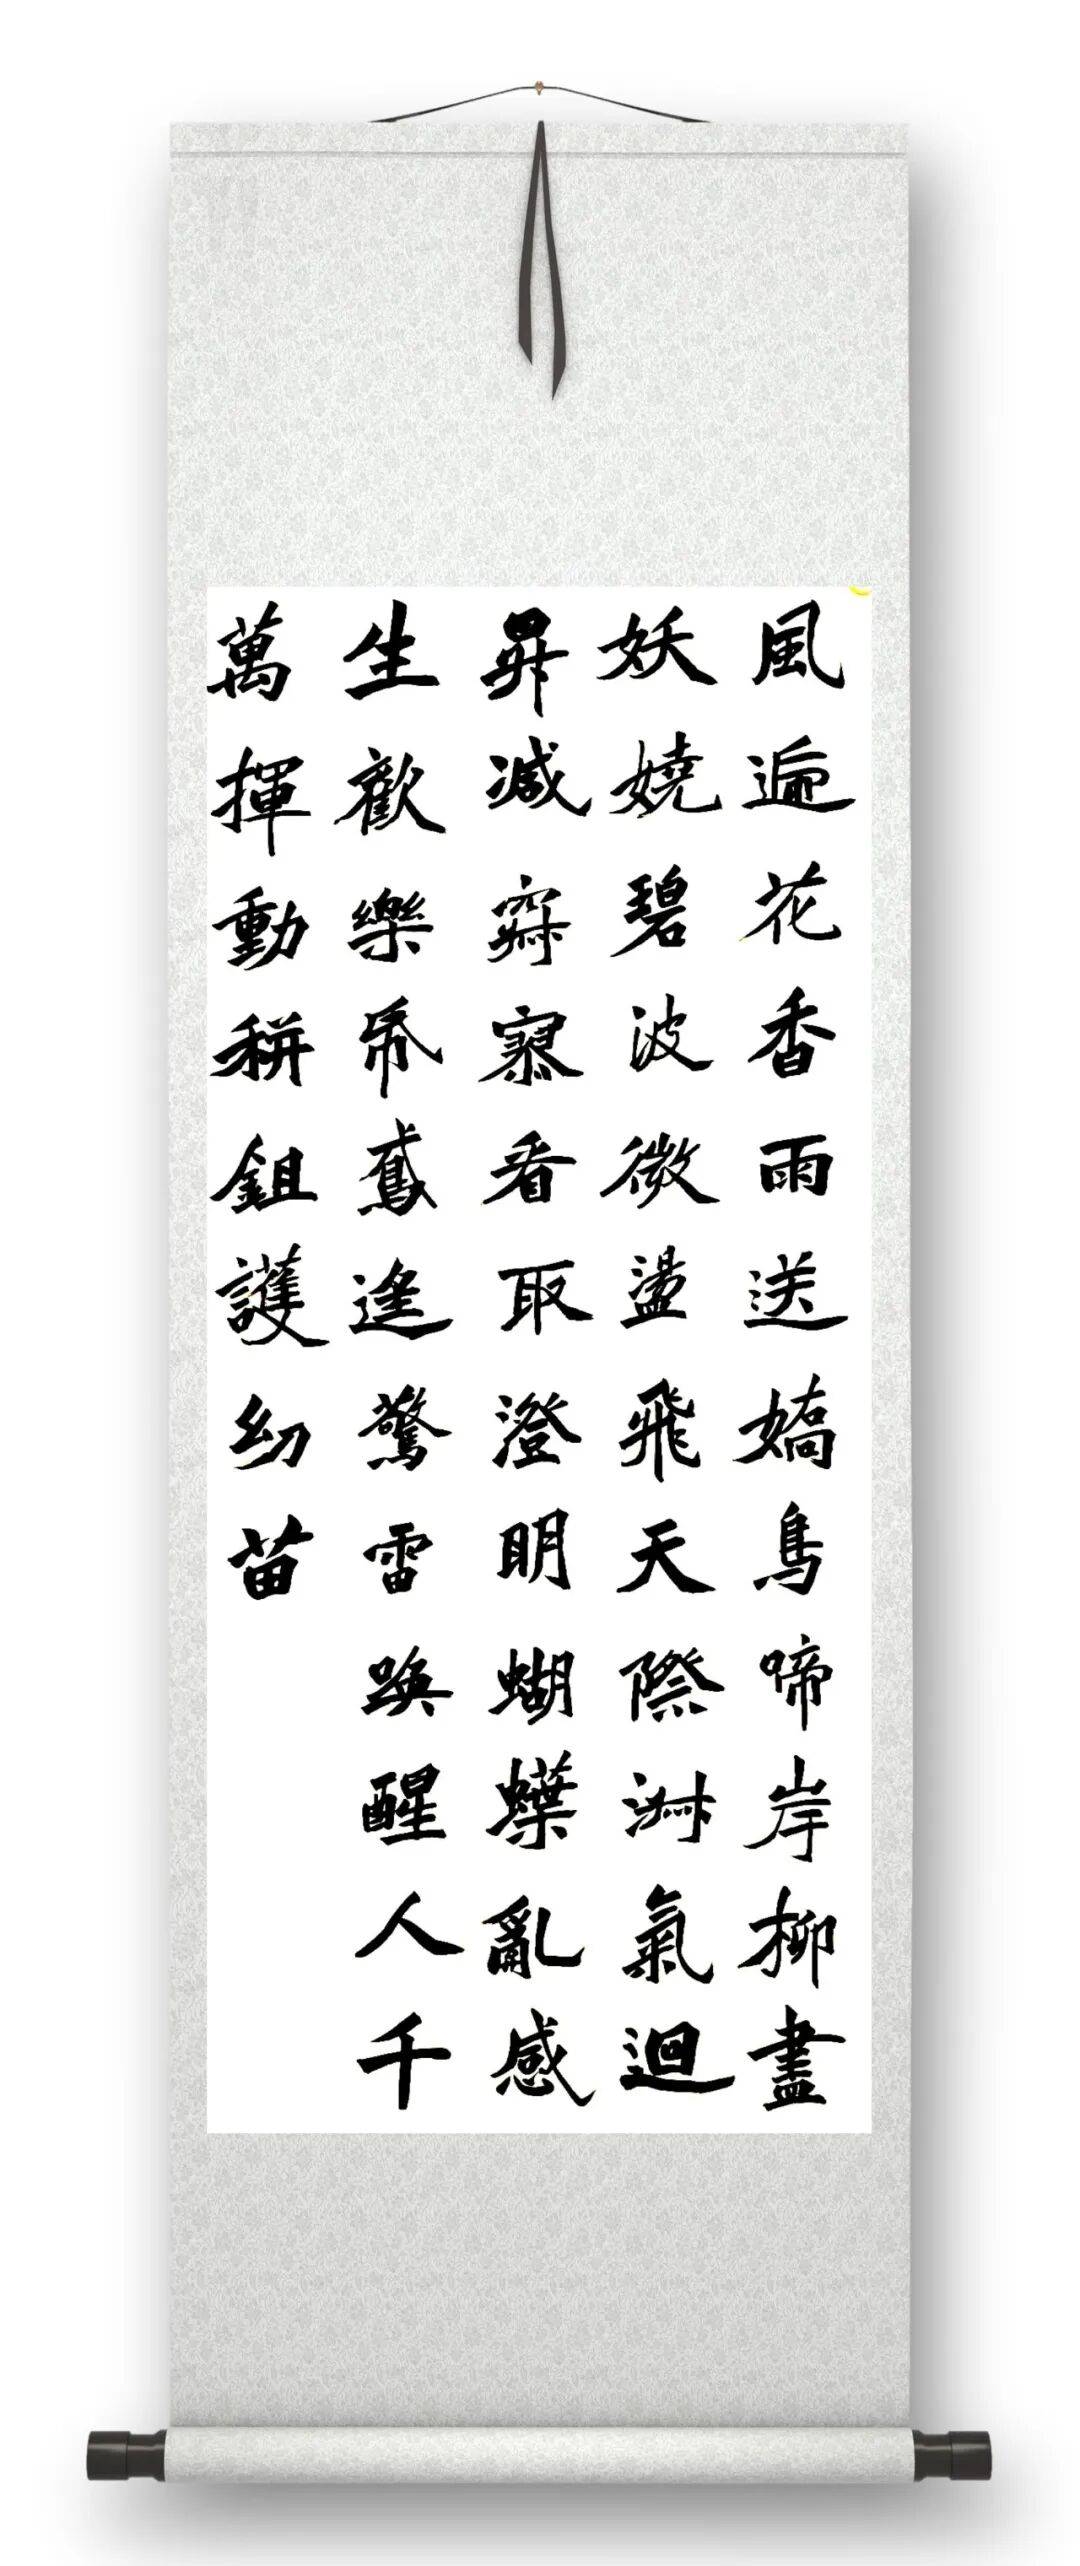 風遍花香雨送嬌鳥啼岸柳盡
妖嬈碧波微盪飛天際淑氣迴
昇減寂寥看取澄明蝴蝶亂感
生歡樂帋鳶遙驚雷喚醒人千
萬揮動耕鉏護幼苗